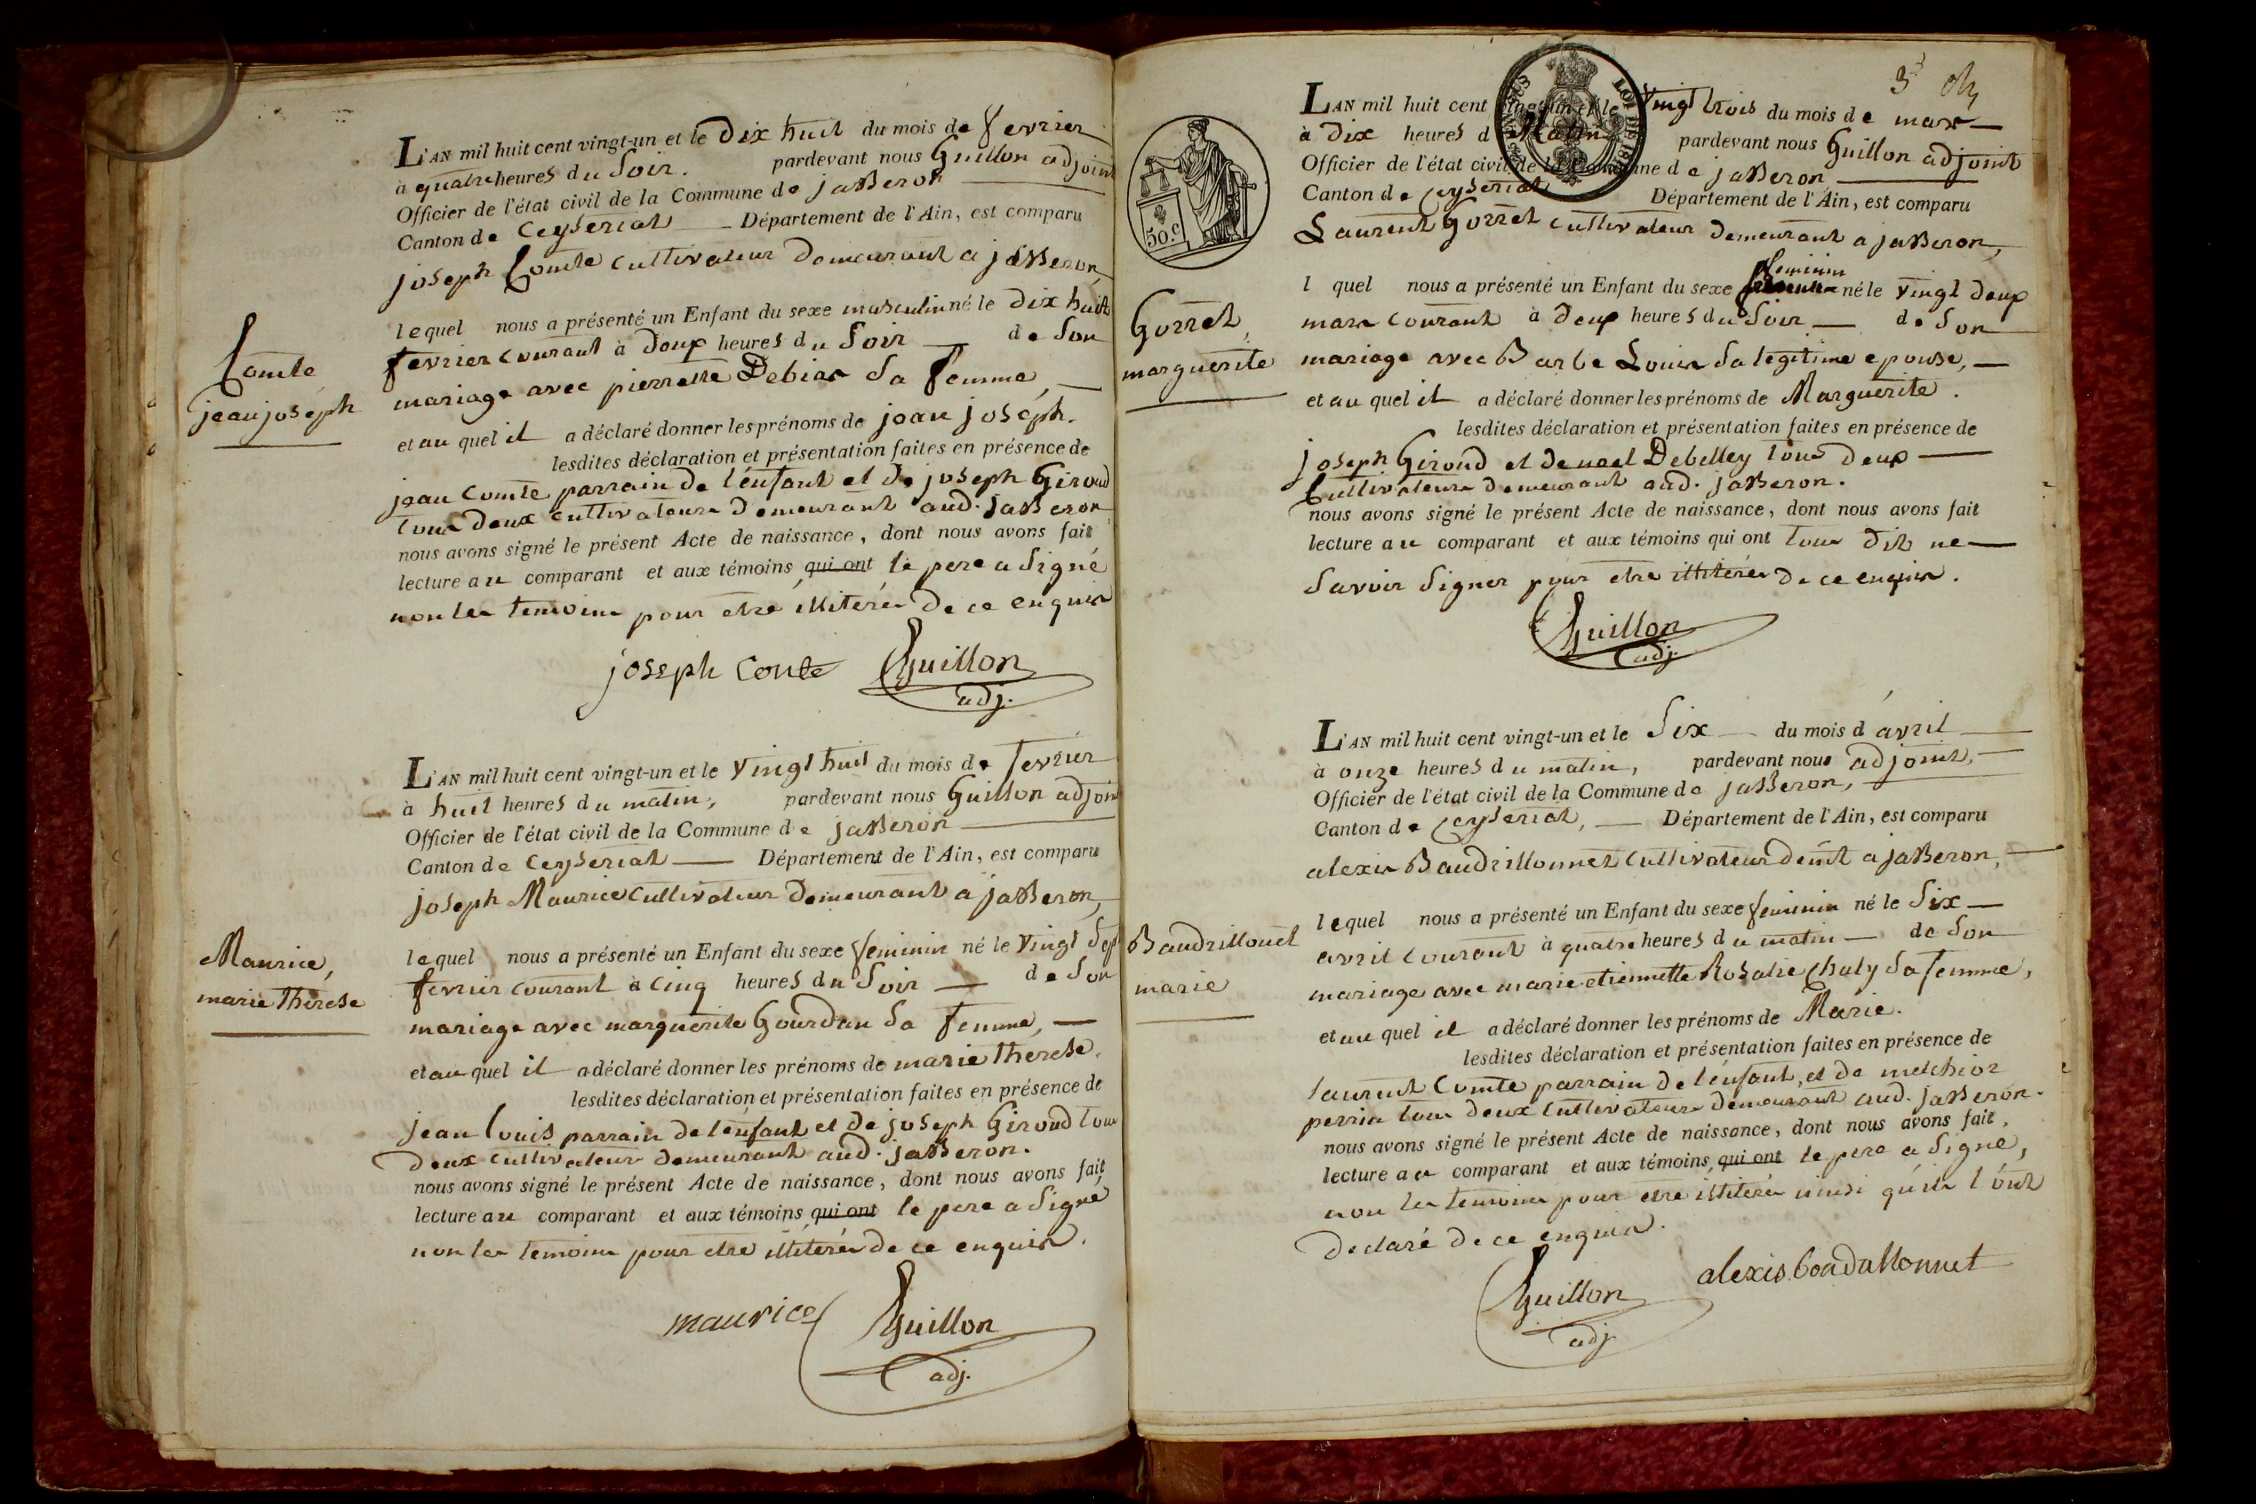 L'AN mil huit cent vingt-un et le Dix huit du mois de fevrier
à quatre heures du Soir. pardevant nous Guillon adjoint
Officier de l'état civil de la Commune de jasseron
Canton de Ceyseriat Département de l'Ain, est comparu
joseph Comte cultivateur demeurant a jasseron,
lequel nous a présenté un Enfant du sexe masculin né le dix huit
fevrier courant à deux heures du Soir de Son
mariage avec pierrette Debias Sa femme,
Comte
jean joséph
et au quel il a déclaré donner les prénoms de jean joséph.
lesdites déclaration et présentation faites en présence de
jean Comte parrain de l'énfant et de joseph Giroud
tous deux cultivateurs demeurant aud. jasseron
nous avons signé le présent Acte de naissance, dont nous avons fait
lecture au comparant et aux témoins qui ont le pere a Signé
non les temoins pour etre illiterés de ce enquis
joseph Conte Guillon
adj.
L'AN mil huit cent vingt-un et le Vingt huit du mois de fevrier
à huit heures du matin, pardevant nous Guillon adjoint
Officier de l'état civil de la Commune de jasseron
Canton de Ceyseriat Département de l'Ain, est comparu
joseph Maurice cultivateur demeurant a jasseron,
Maurice,
marie Thérèse
lequel nous a présenté un Enfant du sexe feminin né le Vingt Sept
fevrier courant à Cinq heures du Soir de Son
mariage avec marguerite Gourdan Sa femme,
et au quel il a déclaré donner les prénoms de marie Therese.
lesdites déclaration et présentation faites en présence de
jean Louis parrain de l'énfant et de joseph Giroud tous
deux cultivateurs demeurant aud. jasseron.
nous avons signé le présent Acte de naissance, dont nous avons fait
lecture au comparant et aux témoins qui ont le pere a Signé
non les temoins pour etre illiterés de ce enquis.
maurice Guillon
adj.
3
L'AN mil huit cent vingt-un et le Vingt trois du mois de mars
à Dix heures d Matin pardevant nous Guillon adjoint
Officier de l'état civil de la Commune de jasseron
Canton de Ceyseriat Département de l'Ain, est comparu
50.c
Laurent Gorret cultivateur demeurant a jasseron,
Gorret,
marguerite
l quel nous a présenté un Enfant du sexe feminin né le Vingt deux
mars courant à deux heures du Soir de Son
mariage avec Barbe Louis Sa legitime epouse,
et au quel il a déclaré donner les prénoms de Marguerite.
lesdites déclaration et présentation faites en présence de
joseph Giroud et de noel Debelley tous deux
Cultivateurs demeurant aud. jasseron.
nous avons signé le présent Acte de naissance, dont nous avons fait
lecture au comparant et aux témoins qui ont tous dit ne
Savoir Signer pour etre illiterés de ce enquis.
Guillon
adj.
L'AN mil huit cent vingt-un et le Six du mois d'avril
à onze heures du matin, pardevant nous adjoint,
Officier de l'état civil de la Commune de jasseron,
Canton de Ceyseriat, Département de l'Ain, est comparu
alexis Baudrillonnet Cultivateur demt a jasseron,
Baudrillonet
marie
lequel nous a présenté un Enfant du sexe feminin né le Six
avril courant à quatre heures du matin de Son
mariage avec marie etiennette Rosalie Chaly Sa femme,
et au quel il a déclaré donner les prénoms de Marie.
lesdites déclaration et présentation faites en présence de
laurent Comte parrain de l'énfant, et de melchior
perrin tous deux Cultivateurs demeurant aud. jasseron.
nous avons signé le présent Acte de naissance, dont nous avons fait
lecture au comparant et aux témoins, qui ont le pere a Signé,
non les temoins pour etre illiterés ainsi qu'ils l'ont
declaré de ce enquis.
Guillon
adj